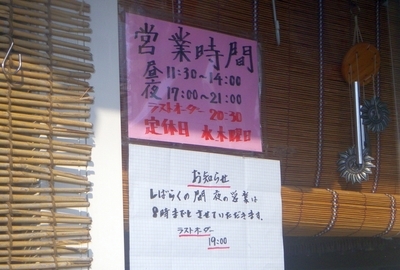 営業時間
昼 11:30~14:00
夜 17:00~21:00
ラストオーダー 20:30
定休日 火木曜日
お知らせ
しばらくの間 夜の営業は
8時までとさせていただきます。
ラストオーダー
19:00